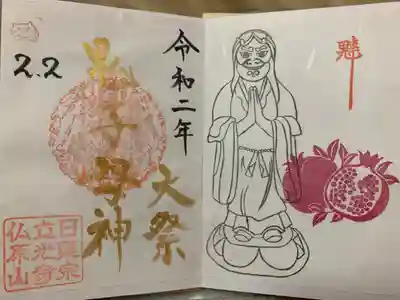 令和二年
大祭
鬼子母神
2.2
日蓮宗
立光寺
仏原山